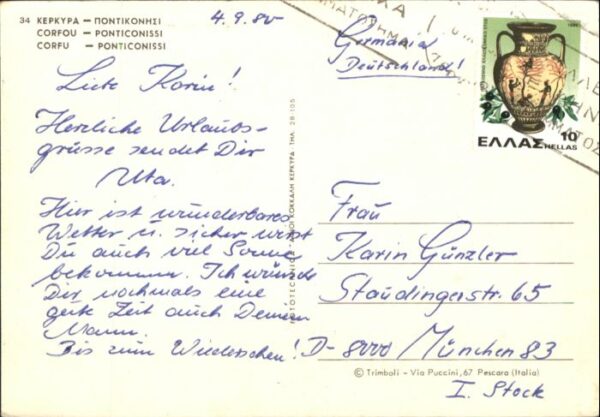 34 ΚΕΡΚΥΡΑ – ΠΟΝΤΙΚΟΝΗΣΙ
CORFOU – PONTICONISSI
CORFU – PONTICONISSI
4.9.80
Germania
Deutschland!
ΕΛΛΑΣ 10 HELLAS
Liebe Karin!
Herzliche Urlaubs-
grüsse sendet Dir
Uta.
Hier ist wunderbares
Wetter u. sicher wirst
Du auch viel Sonne
bekommen. Ich wünsch
Dir nochmals eine
gute Zeit auch Deinem
Mann.
Bis zum Wiedersehen!
ΚΟΚΚΑΛΗ ΚΕΡΚΥΡΑ ΤΗΛ. 28-105
Frau
Karin Günzler
Staudingerstr. 65
D-8000 München 83
© Trimboli – Via Puccini, 67 Pescara (Italia)
I. Stock